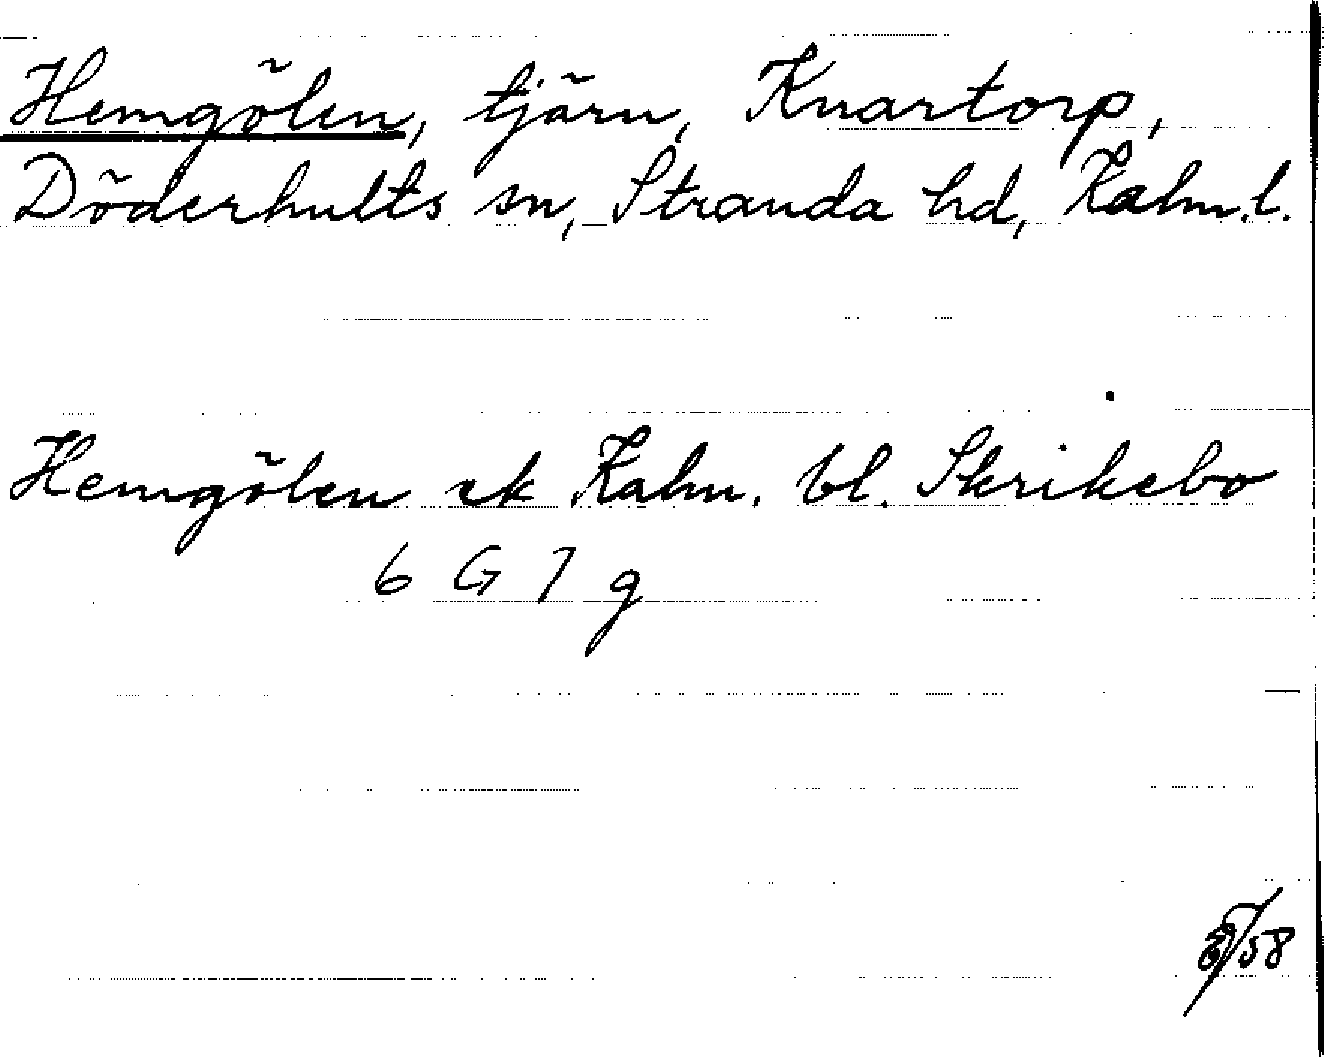 Hemgölen, tjärn, Knartorp,
Döderhults sn, Stranda hd, Kalm.l.
Hemgölen ek Kalm. bl. Skrikebo
6 G 7 g
/58